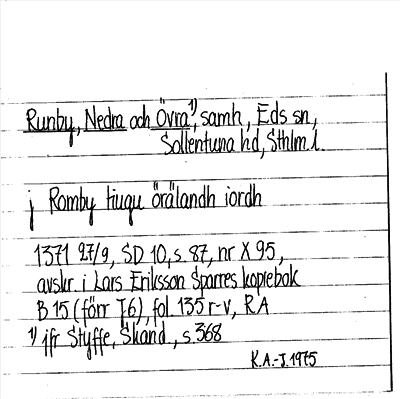 Runby, Nedra och Övra¹⁾, samh, Eds sn,
Sollentuna hd, Sthlm l.
j Romby tiugu örälandh iordh
1371 27/9, SD 10, s. 87, nr X 95,
avskr. i Lars Eriksson Sparres kopiebok
B 15 (förr I 6), fol. 135 r-v, RA
¹⁾ jfr Styffe, Skand., s. 368
K.A.-J. 1975